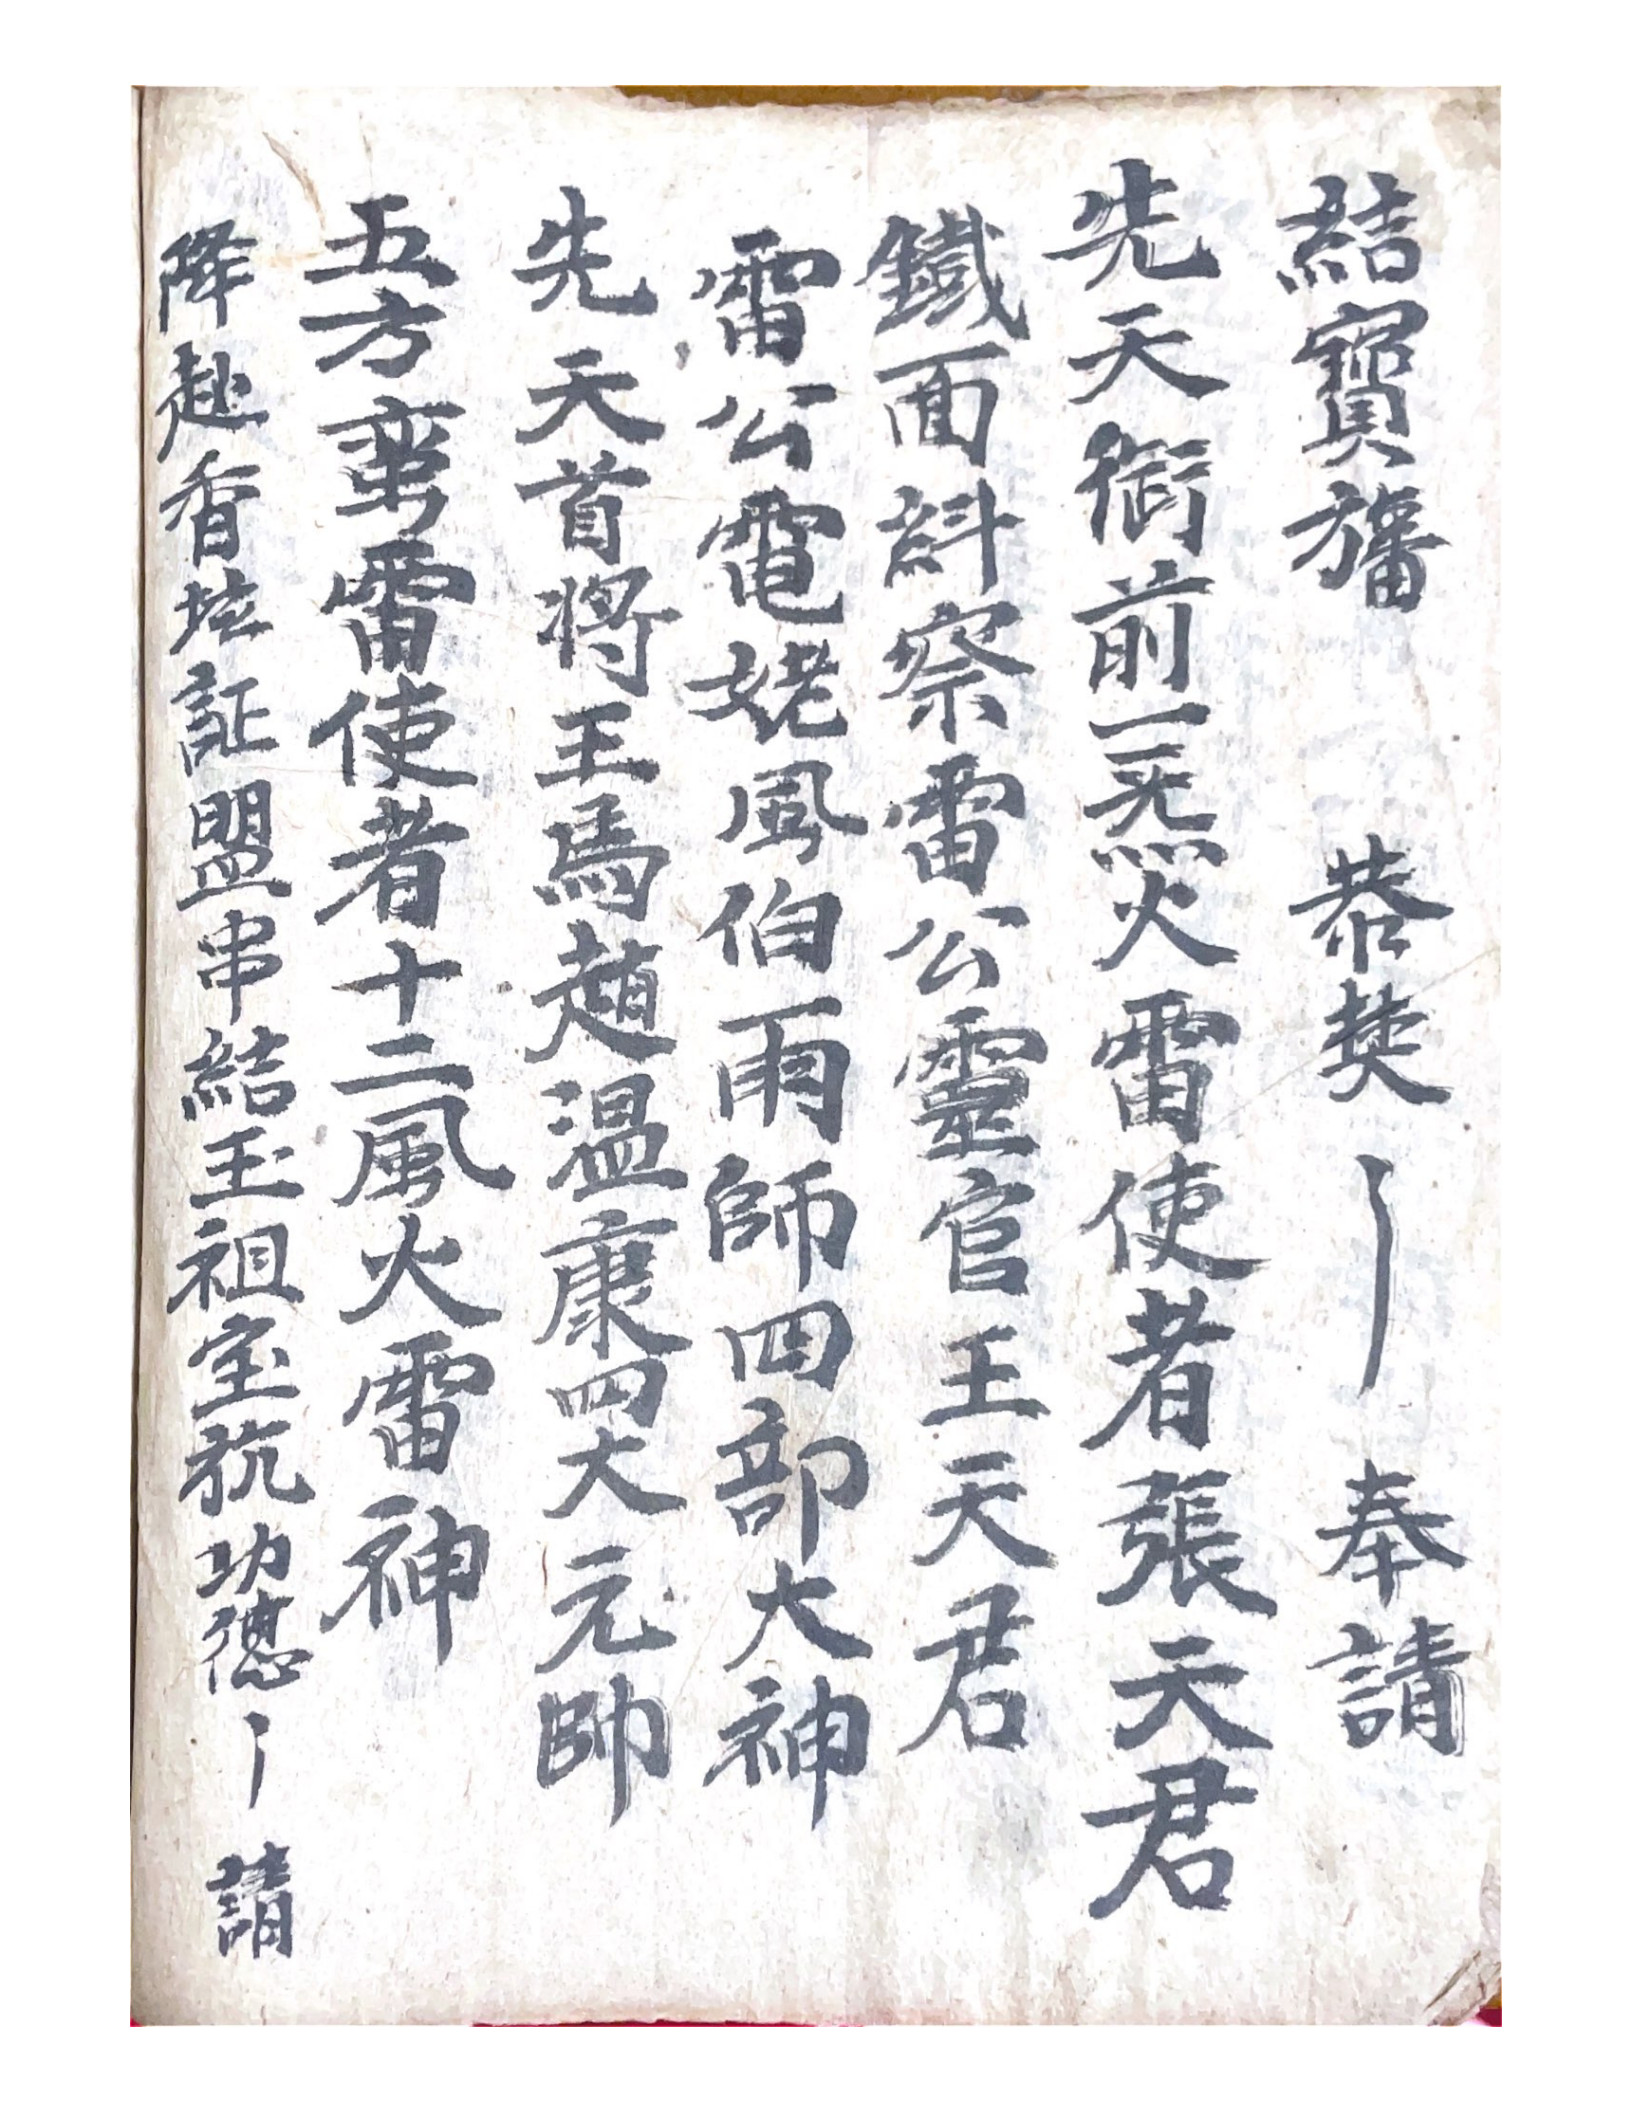 結寳旛 恭焚丨奉請
先天衙前三炁火雷使者張天君
鐵面糾察雷公靈官王天君
雷公電姥風伯雨師四部大神
先天首將王馬趙温康四大元帥
五方蛮雷使者十二風火雷神
降赴香坛証盟串結玉祖宝旐功德丨請